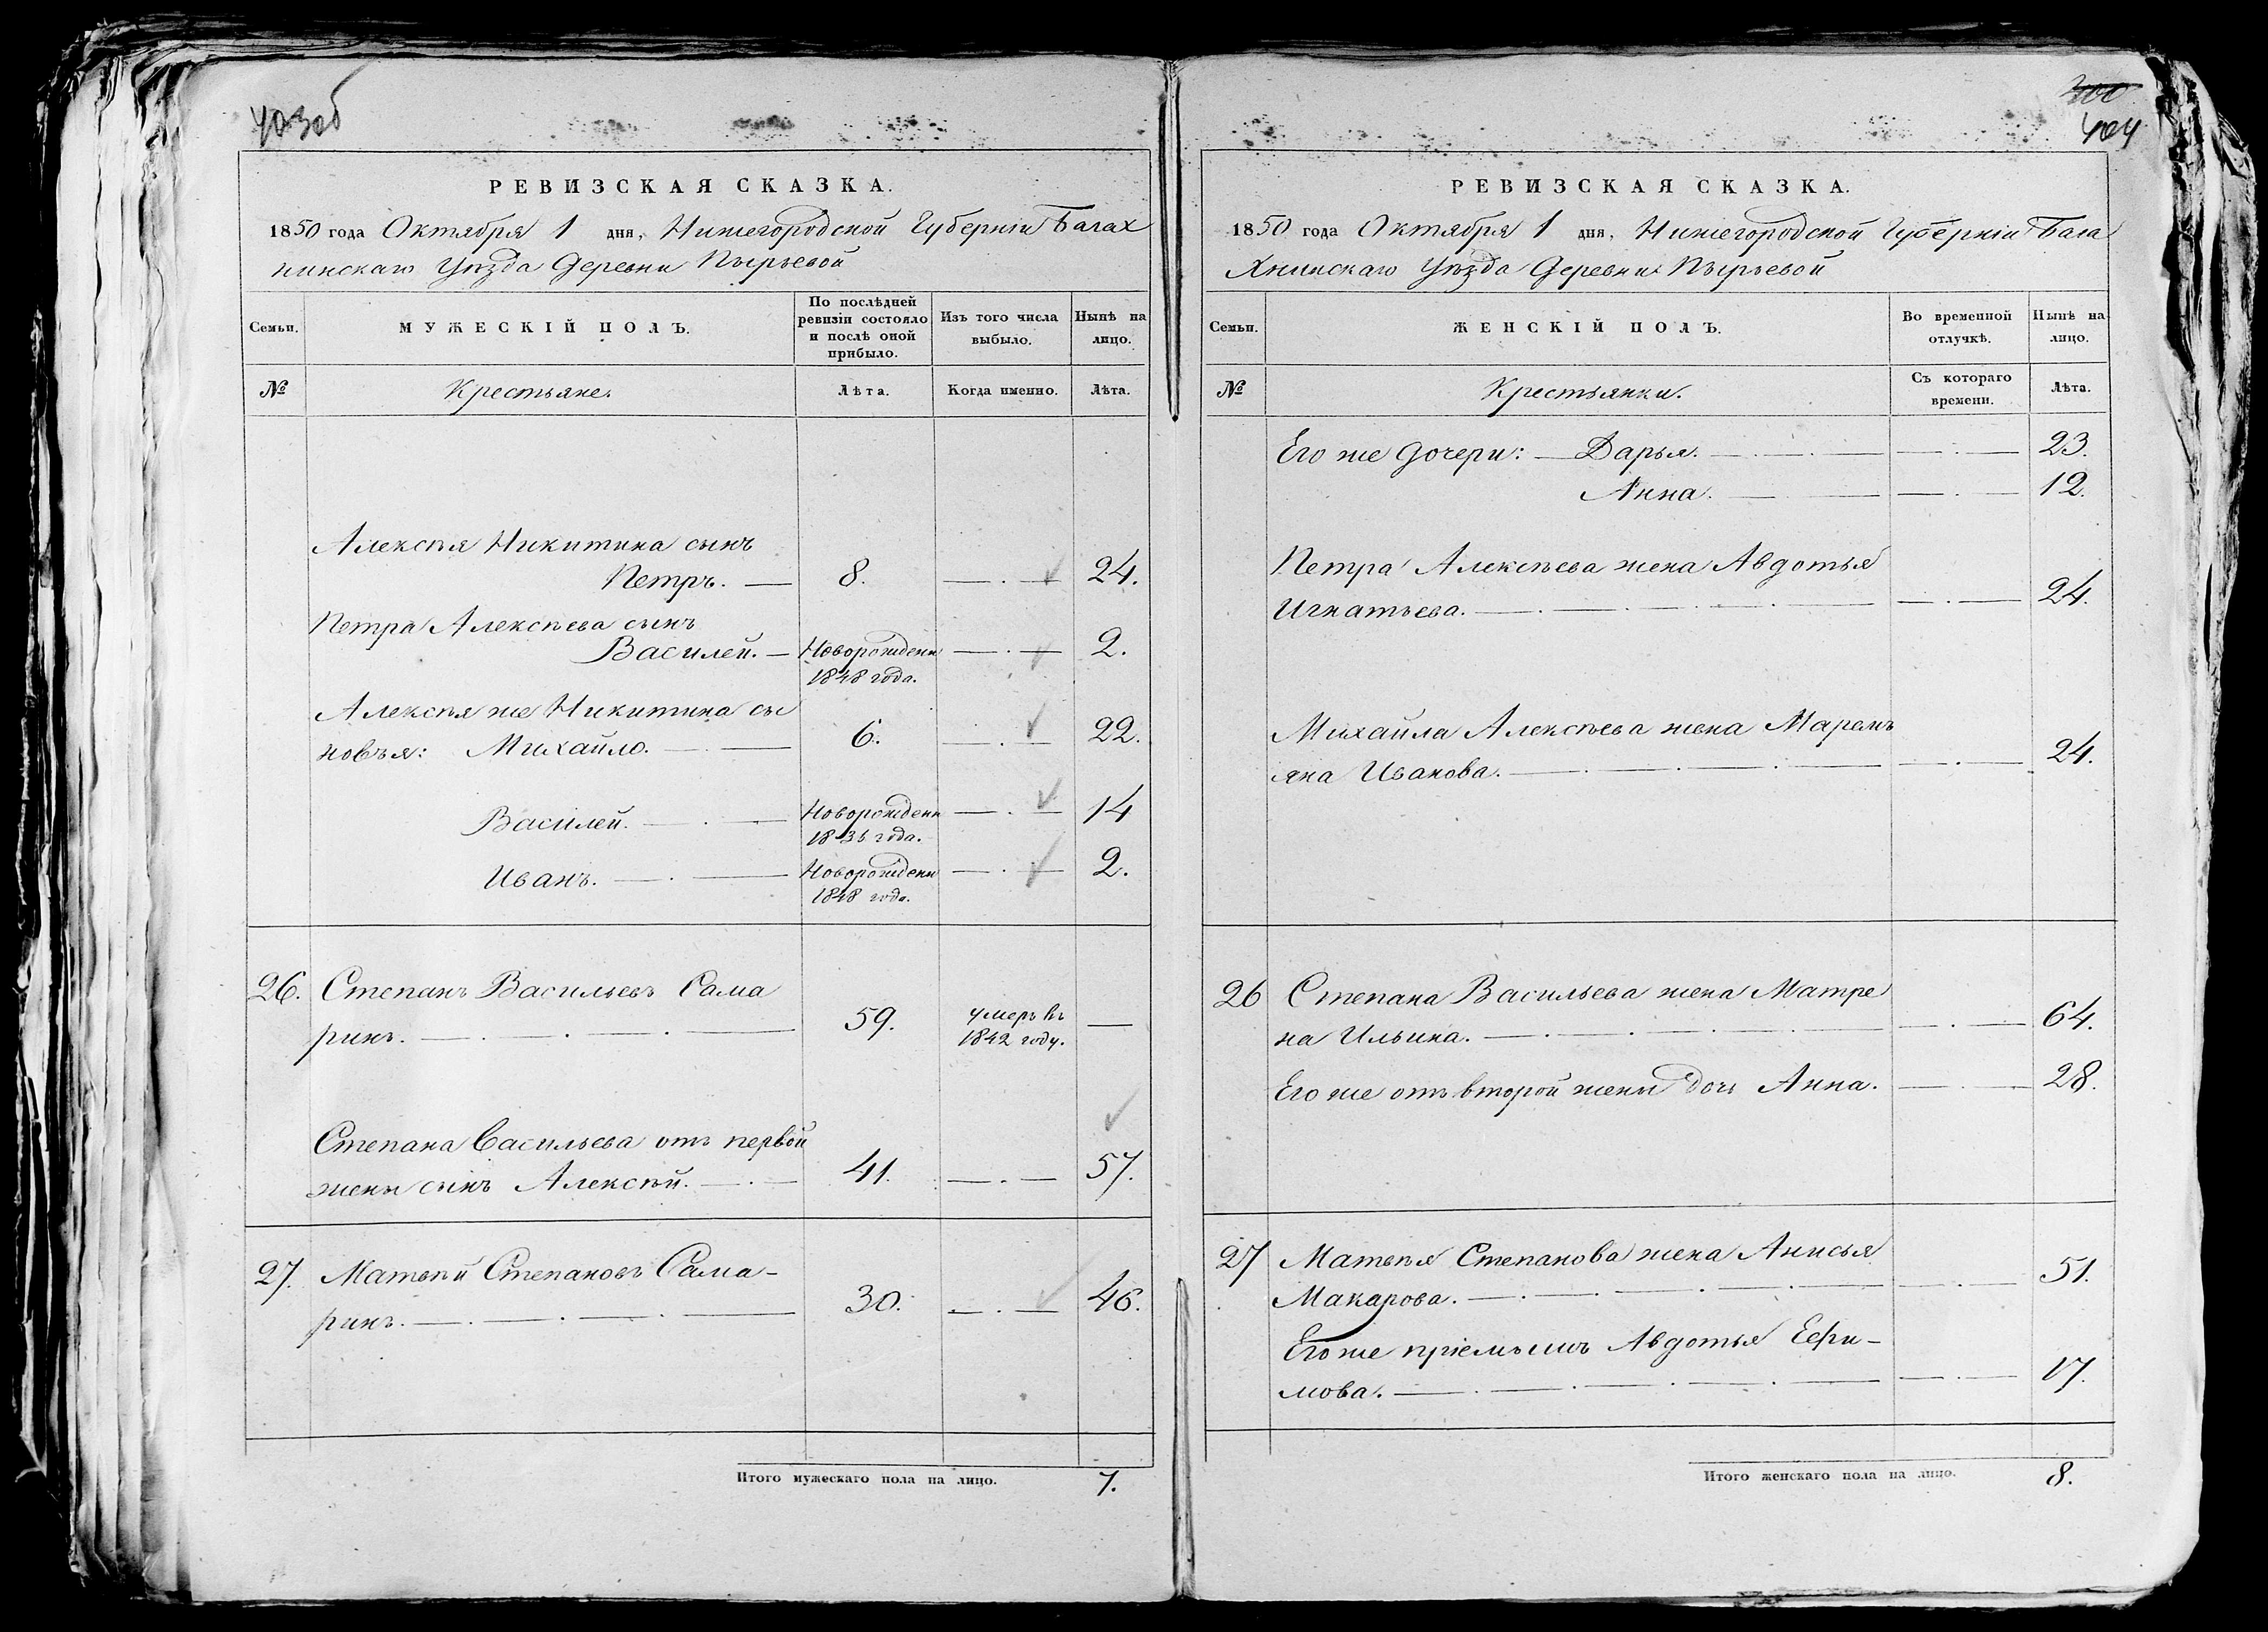 403об
РЕВИЗСКАЯ СКАЗКА.
1850 года Октября 1 дня, Нижегородской Губерніи Балах
нинскаго Уѣзда Деревни Пырьевой
Семьи.
МУЖЕСКІЙ ПОЛЪ.
По послѣдней ревизіи состояло и послѣ оной прибыло.
Изъ того числа выбыло.
Нынѣ на лицо.
№
Крестьяне.
Лѣта.
Когда именно.
Лѣта.
Алексѣя Никитина сынъ
Петръ. — 8. — . — 24.
Петра Алексѣева сынъ
Василей. — Новорожденн — . — 2.
1848 года.
Алексѣя же Никитина сы
новья: Михайло. — 6. — . — 22.
Василей. — . — Новорожденн — . — 14
1836 года.
Иванъ. — . — Новорожденн — . — 2.
1848 года.
26. Степанъ Васильевъ Сама
ринъ. — . — . — . — 59. умеръ въ —
1842 году.
Степана Васильева отъ первой
жены сынъ Алексѣй. — . — 41. — . — 57.
27. Матвѣй Степановъ Сама-
ринъ. — . — . — . — 30. — . — 46.
Итого мужескаго пола на лицо. 7.
300
404
РЕВИЗСКАЯ СКАЗКА.
1850 года Октября 1 дня, Нижегородской Губерніи Бала
хнинскаго Уѣзда Деревни Пырьевой
Семьи.
ЖЕНСКІЙ ПОЛЪ.
Во временной отлучкѣ.
Нынѣ на лицо.
№
Крестьянки.
Съ котораго времени.
Лѣта.
Его же дочери: — Дарья. — . — . — — . — 23.
Анна. — — — . — 12.
Петра Алексѣева жена Авдотья
Игнатьева. — . — . — . — — . — 24.
Михайла Алексѣева жена Маремь
яна Иванова. — . — . — . — — . — 24.
26 Степана Васильева жена Матре
на Ильина. — . — . — . — — . — 64.
Его же отъ второй жены дочь Анна. — . — 28.
27 Матвѣя Степанова жена Анисья
Макарова. — . — . — . — — . — 51.
Его же пріемышъ Авдотья Ефи-
мова. — . — . — . — — . — 17.
Итого женскаго пола на лицо. 8.